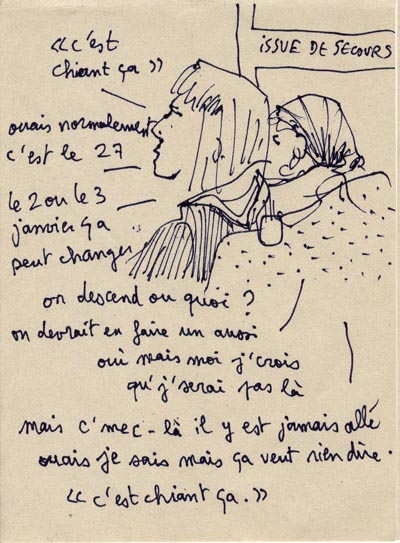 « c'est
chiant ça »
ISSUE DE SECOURS
ouais normalement
c'est le 27
le 2 ou le 3
janvier ça
peut changer
on descend ou quoi ?
on devrait en faire un aussi
oui mais moi j'crois
qu'j'serai pas là
mais c'mec-là il y est jamais allé
ouais je sais mais ça veut rien dire.
« c'est chiant ça. »